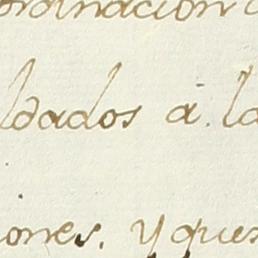 ordinacion
ldados a la
iones, y ques